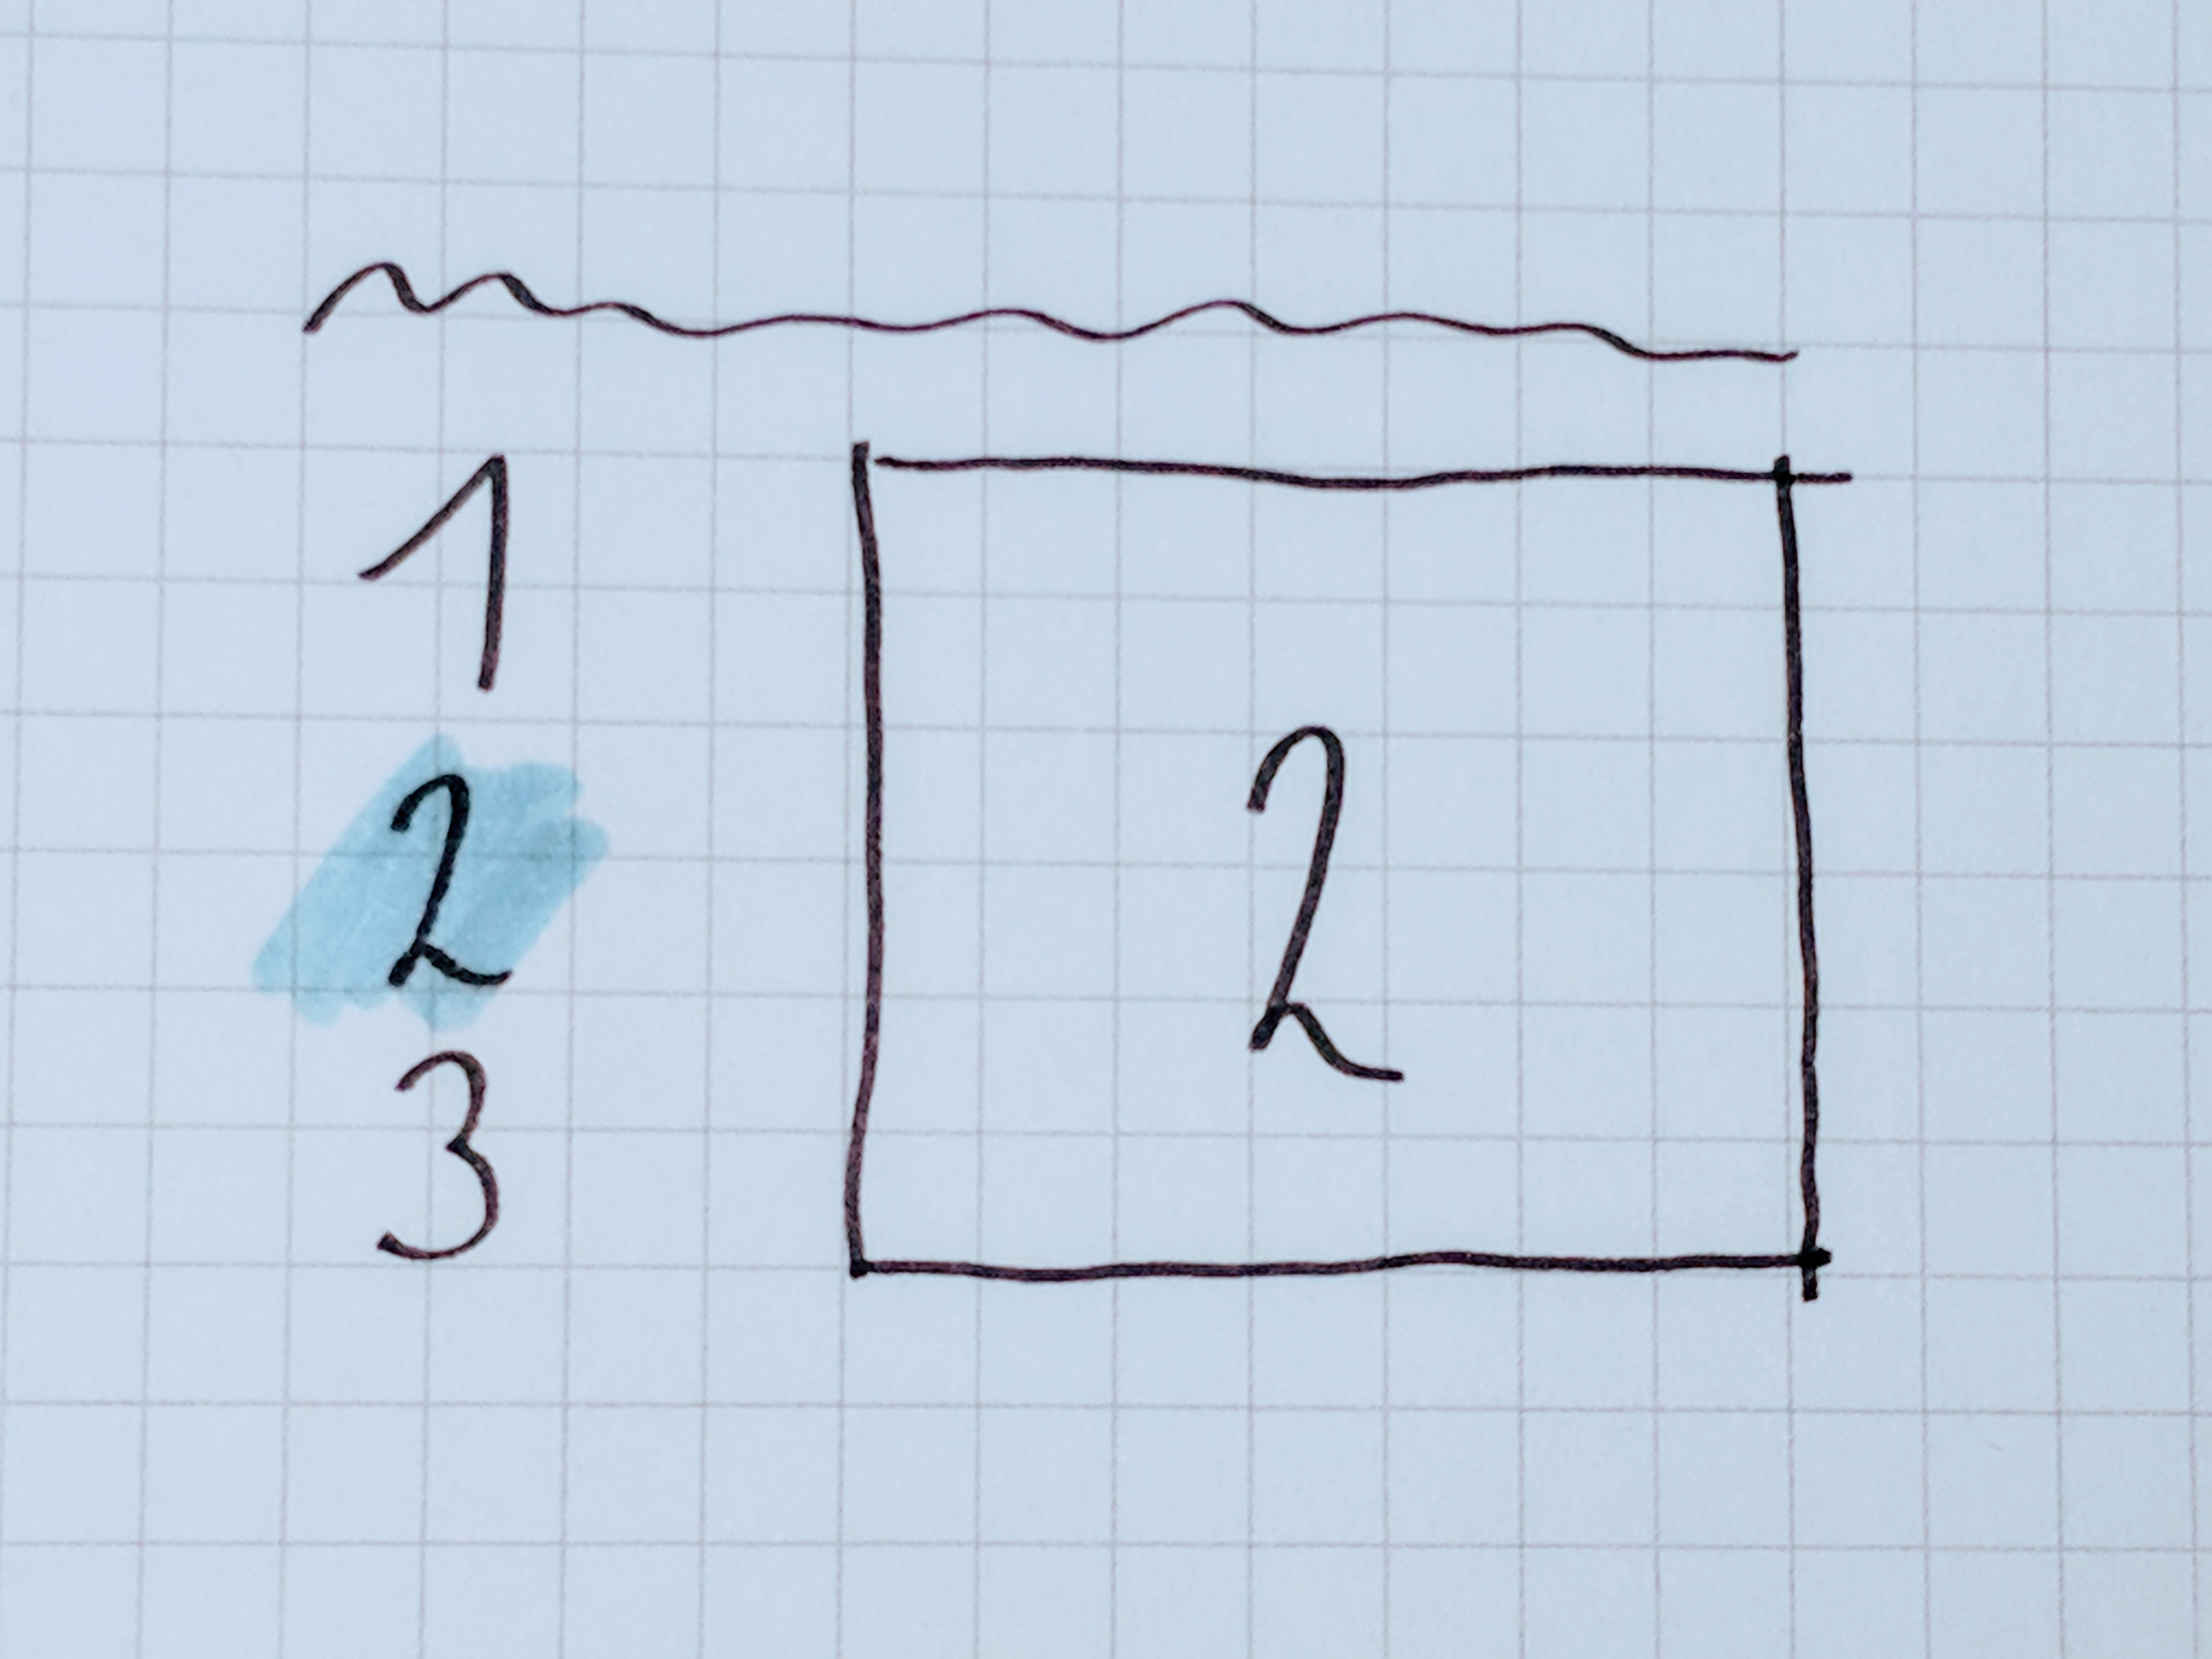 1
2
3
2